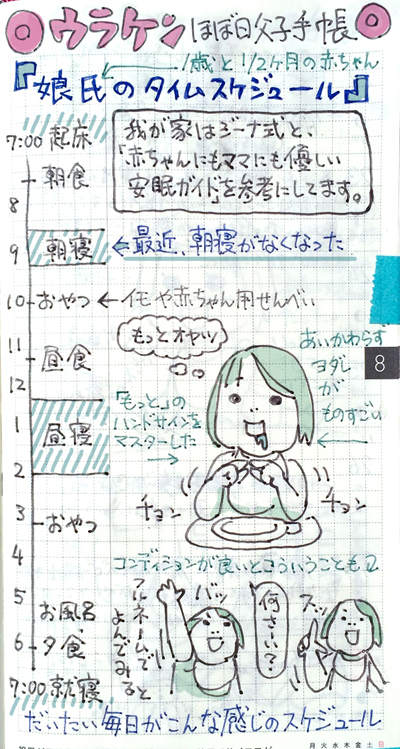 ウラケン ほぼ日父子手帳
1歳と1/2ヶ月の赤ちゃん
『娘氏のタイムスケジュール』
7:00 起床
朝食
8
9
朝寝 ← 最近、朝寝がなくなった
10 おやつ ← イモや赤ちゃん用せんべい
11
昼食
12
1
昼寝
2
3 おやつ
4
5
お風呂
6 夕食
7:00 就寝
我が家はジーナ式と、
「赤ちゃんにもママにも優しい
安眠ガイド」を参考にしてます。
もっとオヤツ
あいかわらず
ヨダレ
が
ものすごい
8
「もっと」の
ハンドサインを
マスターした
チョン
チョン
コンディションが良いとこういうことも
フルネームで
よんでみると
バッ
何さーい?
スッ
だいたい毎日がこんな感じのスケジュール
月 火 水 木 金 土 日